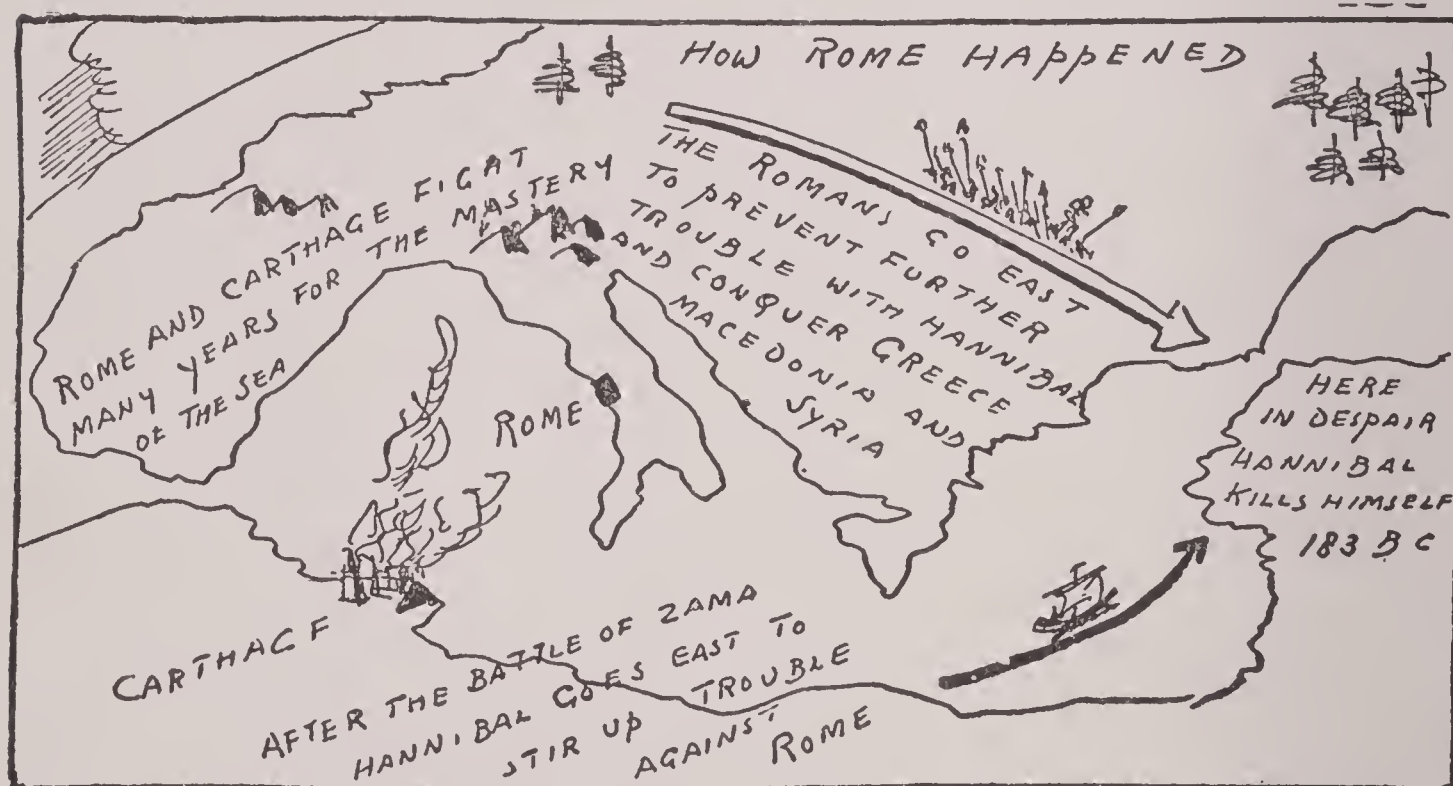 HOW ROME HAPPENED
ROME AND CARTHAGE FIGHT
MANY YEARS FOR THE MASTERY
OF THE SEA
THE ROMANS GO EAST
TO PREVENT FURTHER
TROUBLE WITH HANNIBAL
AND CONQUER GREECE
MACEDONIA AND
SYRIA
ROME
HERE
IN DESPAIR
HANNIBAL
KILLS HIMSELF
183 B C
CARTHAGE
AFTER THE BATTLE OF ZAMA
HANNIBAL GOES EAST TO
STIR UP TROUBLE
AGAINST
ROME